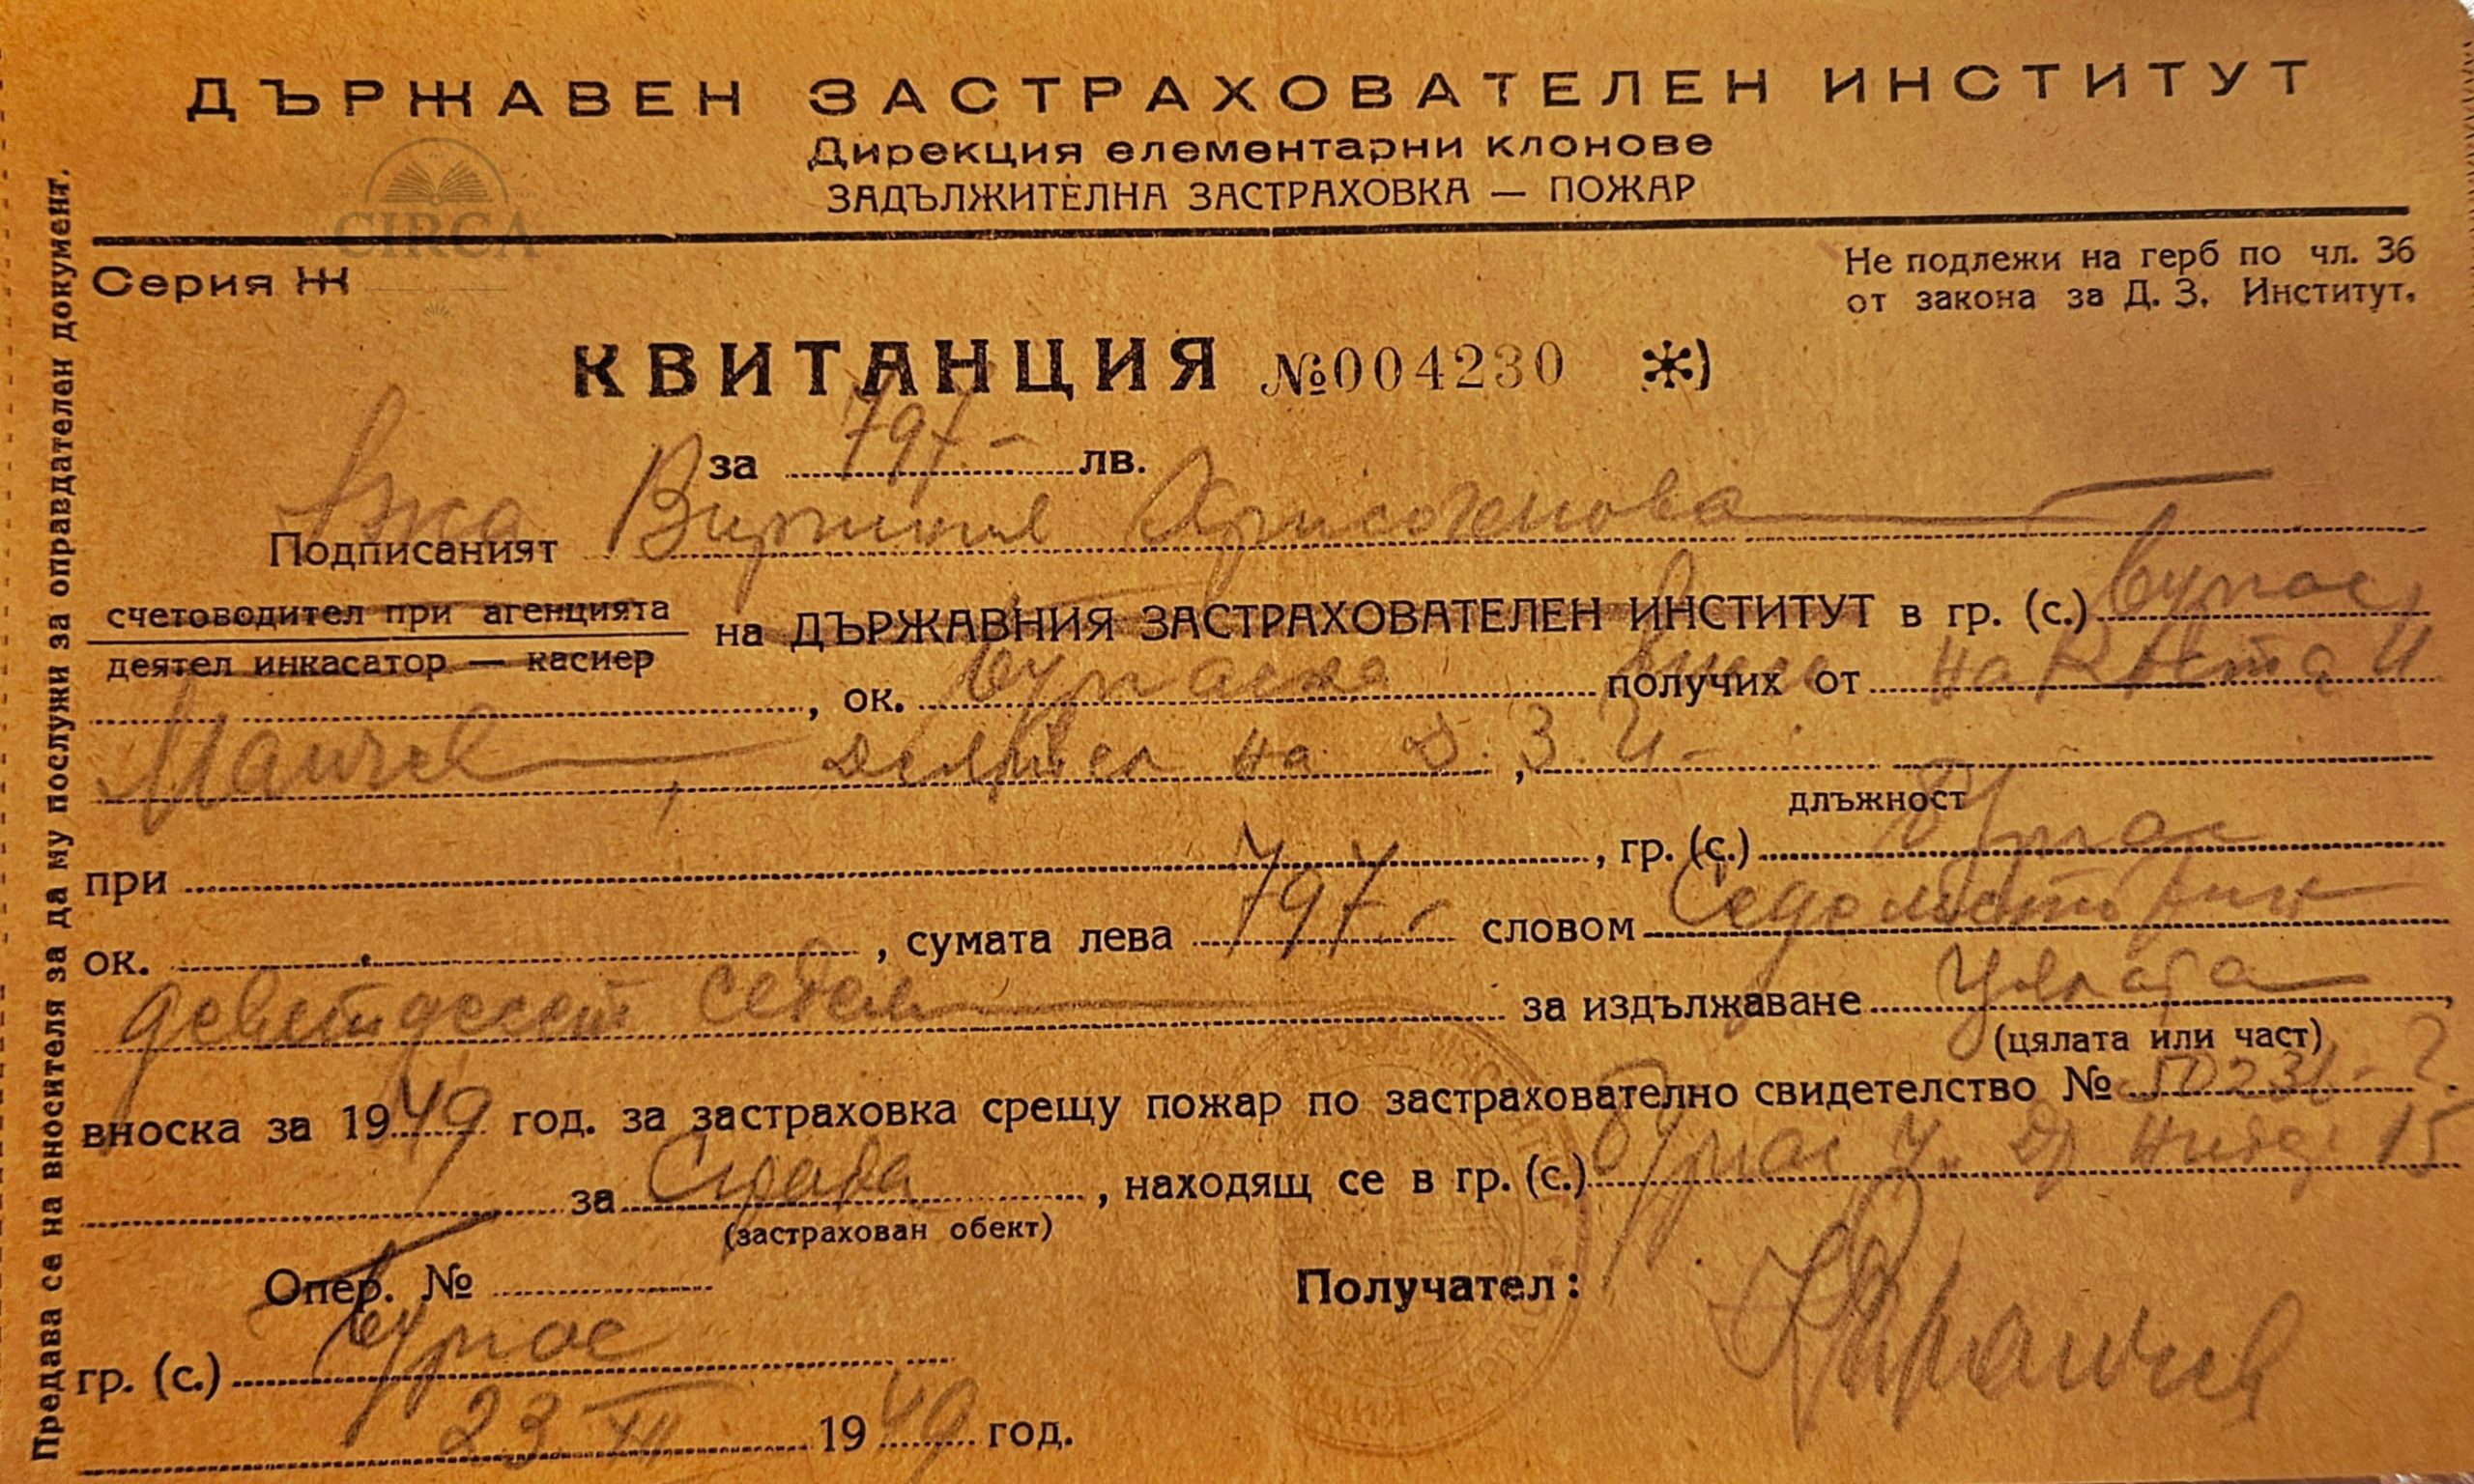 ДЪРЖАВЕН ЗАСТРАХОВАТЕЛЕН ИНСТИТУТ
Дирекция елементарни клонове
ЗАДЪЛЖИТЕЛНА ЗАСТРАХОВКА — ПОЖАР
CIRCA
Серия Ж
Не подлежи на герб по чл. 36
от закона за Д. З. Институт.
КВИТАНЦИЯ №004230 *)
за 797.- лв.
Подписаният
счетоводител при агенцията
деятел инкасатор — касиер
на ДЪРЖАВНИЯ ЗАСТРАХОВАТЕЛЕН ИНСТИТУТ в гр. (с.) Бургас
, ок. Бургаска получих от на Коста И
Манчев, на Д. З. И-
длъжност
при , гр. (с.) Бургас
ок. , сумата лева 797.- словом Седемстотин
деветдесет седем за издължаване Цялата,
(цялата или част)
вноска за 1949 год. за застраховка срещу пожар по застрахователно свидетелство №
за Сграда, находящ се в гр. (с.) Бургас 15
(застрахован обект)
Опер. №
Получател:
гр. (с.) Бургас
23 XII 1949 год.
Предава се на вносителя за да му послужи за оправдателен документ.